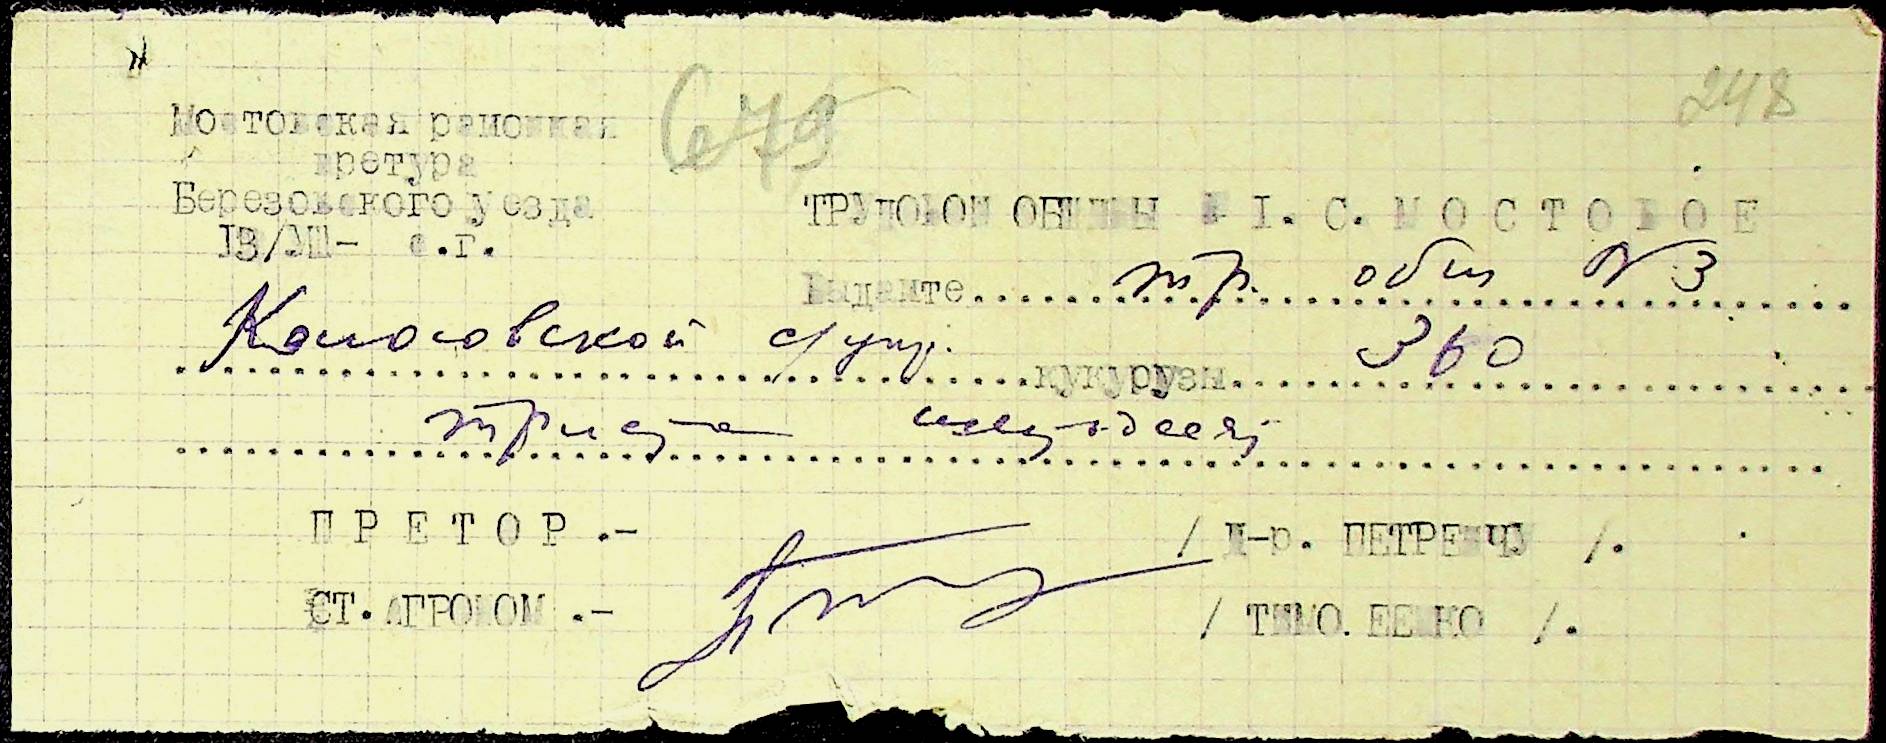 679
248
Мостовская районная
претура
Березовского уезда
ТРУДОВОЙ ОБЩИНЫ № I. С. МОСТОВОЕ
/VIII- с.г.
Выдайте тр. общ № 3
Колосовской с/упр. кукурузы 360
триста шестьдесят
ПРЕТОР.-
/ Д-р. ПЕТРЕНЧУ /.
СТ. АГРОНОМ.-
/ ТИМО.ЕЕНКО /.